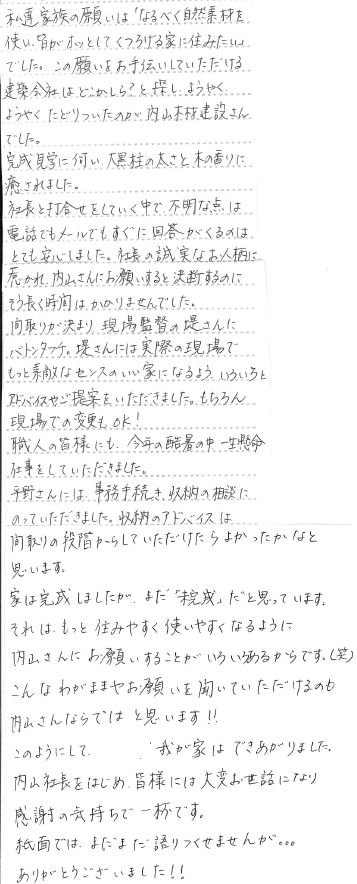 私達家族の願いは「なるべく自然素材を
使い皆がホッとしてくつろげる家に住みたい」
でした。この願いをお手伝いしていただける
建築会社はどこかしら?と探し、ようやく
ようやくたどりついたのが、内山木材建設さん
でした。
完成見学に伺い、大黒柱の太さと木の香りに
癒されました。
社長と打合せをしていく中で、不明な点は
電話でもメールでもすぐに回答がくるのは
とても安心しました。社長の誠実なお人柄に
惹かれ、内山さんにお願いすると決断するのに
そう長く時間はかかりませんでした。
間取りが決まり、現場監督の堤さんに
バトンタッチ。堤さんには実際の現場で
もっと素敵なセンスのいい家になるよう、いろいろと
アドバイスやご提案をいただきました。もちろん
現場での変更もOK!
職人の皆様にも、今年の酷暑の中一生懸命
仕事をしていただきました。
平野さんには、事務手続き、収納の相談に
のっていただきました。収納のアドバイスは
間取りの段階からしていただけたらよかったかなと
思います。
家は完成しましたが、まだ「未完成」だと思っています。
それは、もっと住みやすく使いやすくなるように
内山さんにお願いすることがいろいろあるからです。(笑)
こんなわがままやお願いを聞いていただけるのも
内山さんならではと思います!!
このようにして、我が家はできあがりました。
内山社長をはじめ、皆様には大変お世話になり
感謝の気持ちで一杯です。
紙面では、まだまだ語りつくせませんが...
ありがとうございました!!